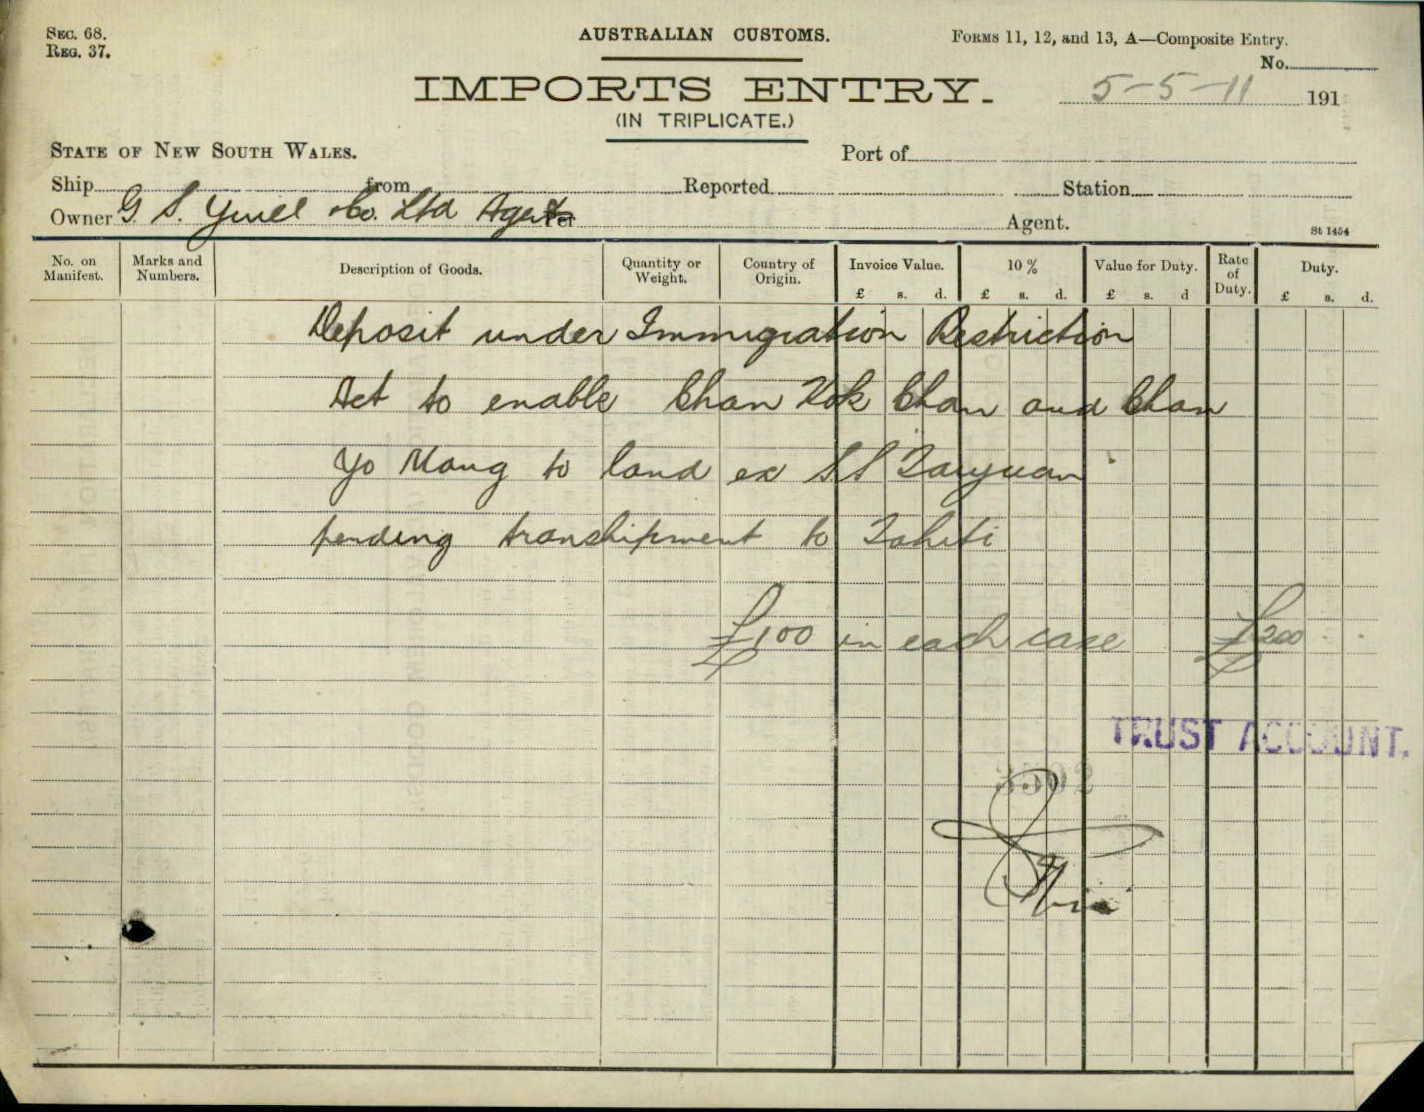 SEC. 68.
REG. 37.
AUSTRALIAN CUSTOMS.
FORMS 11, 12, and 13, A—Composite Entry.
No.
IMPORTS ENTRY.
5-5-11 191
(IN TRIPLICATE.)
STATE OF NEW SOUTH WALES.
Port of
Ship from Reported Station
Owner G. S. Yuill & Co. Ltd Agents Per Agent.
St 1454
No. on Manifest.
Marks and Numbers.
Description of Goods.
Quantity or Weight.
Country of Origin.
Invoice Value.
£ s. d.
10 %
£ s. d.
Value for Duty.
£ s. d
Rate of Duty.
Duty.
£ s. d.
Deposit under Immigration Restriction
Act to enable Chan Kok Chan and Chan
Yo Mang to land ex SS Taiyuan
pending transhipment to Tahiti
£100 in each case £200
TRUST ACCOUNT.
3502